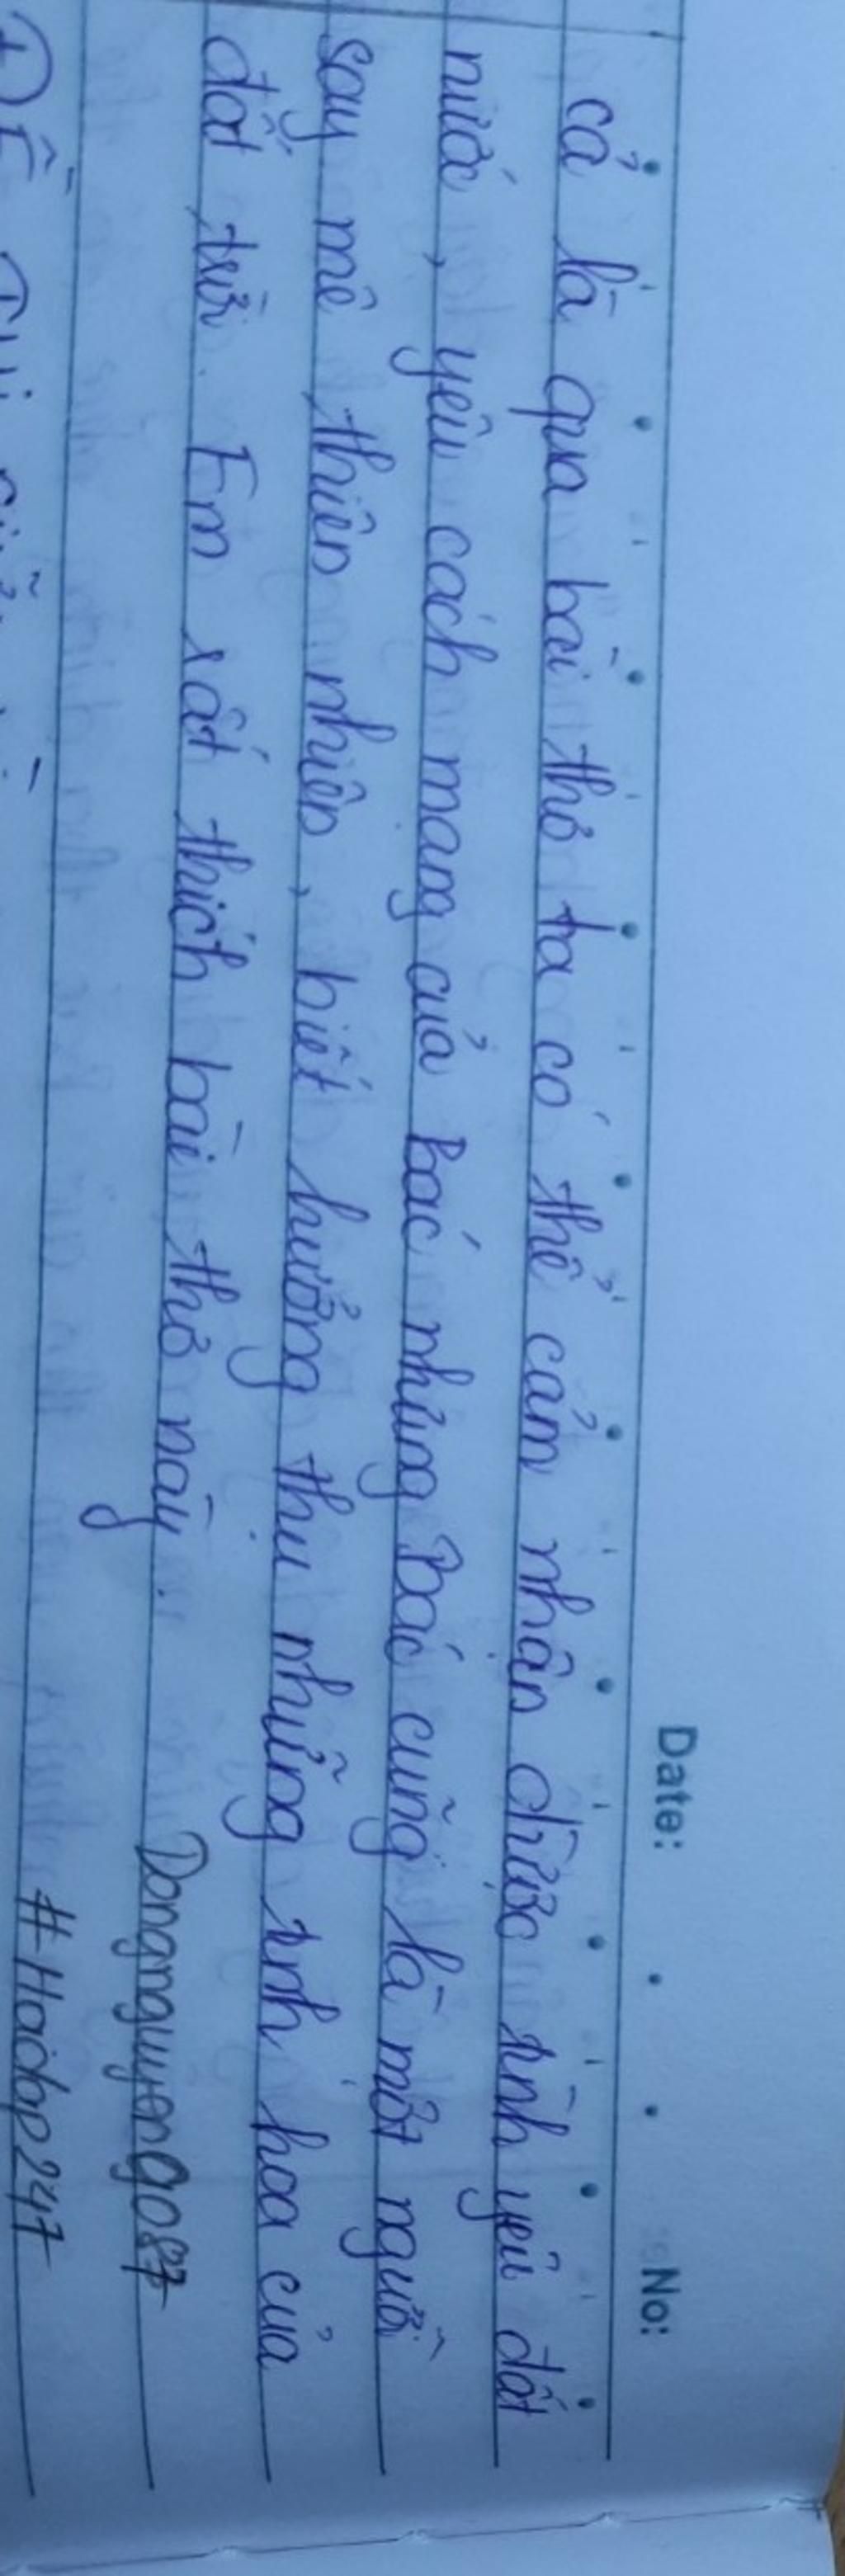 Date: No:
cả là qua bài thơ ta có thể cảm nhận được tình yêu đất
nước, yêu cách mạng của bác nhưng Bác cũng là một người
say mê thiên nhiên, biết hưởng thụ những tinh hoa của
đất trời. Em rất thích bài thơ này.
Dangnguyen9087
#Hoidap247